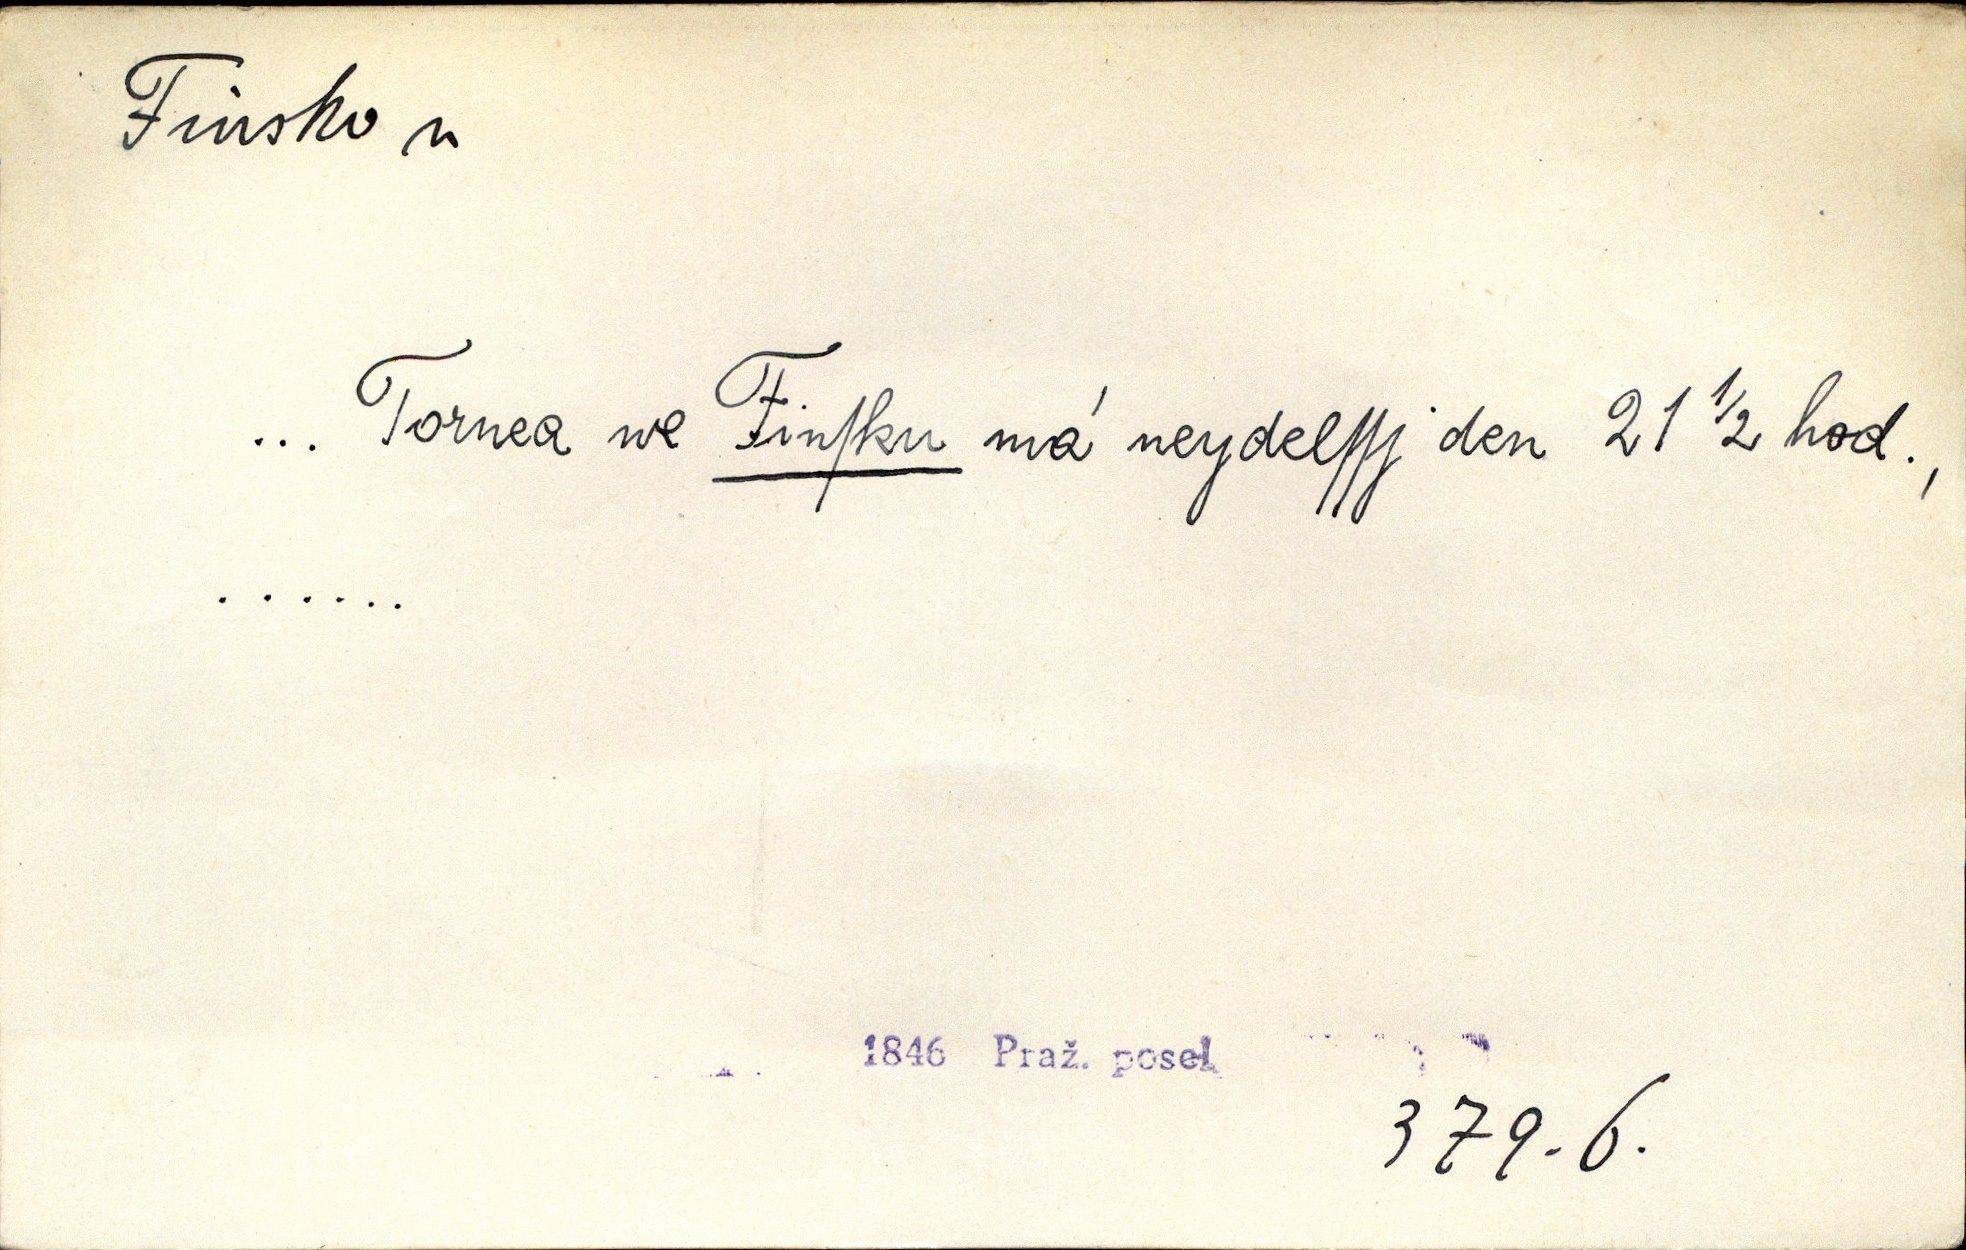 Finsko n
... Tornea we Finſku má neydelſſj den 21 1/2 hod.,
......
1846 Praž. posel
379. 6.